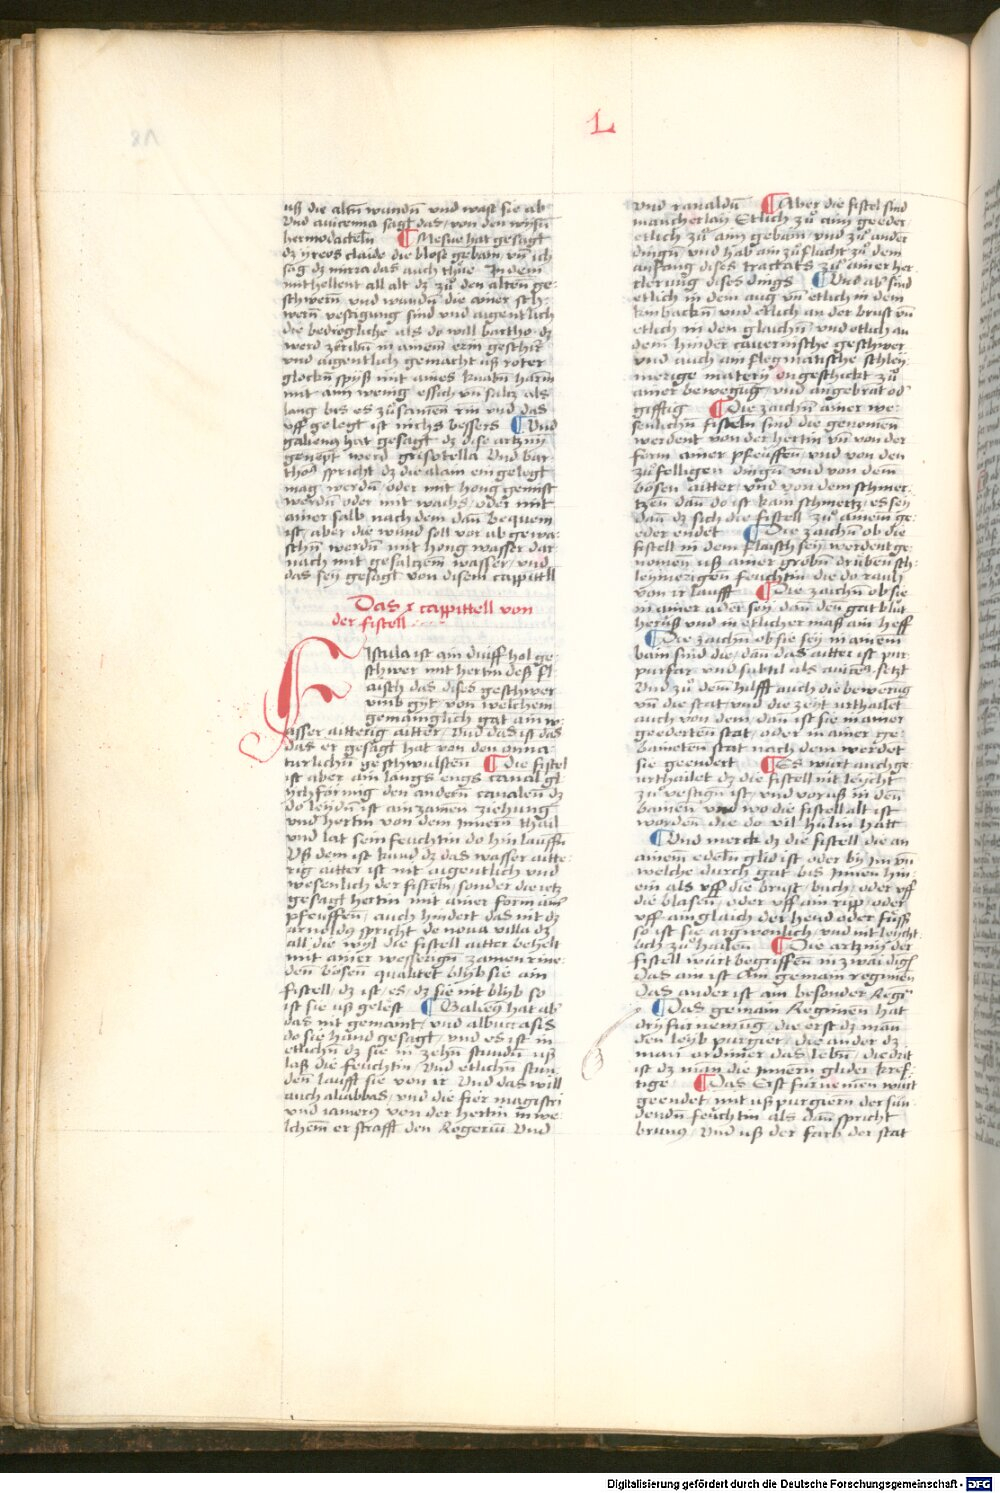 L
uß die altn̄ wundn̄ vnd wast sie ab
Vnd auicenna sagt das / von den wysn̄
hermodacteln ¶ Mesue hat gesagt
dz yreos claide die blose gebain vn̄ ich
sag dz mirra das auch thüe In dem
mithellent all alt dz zů den alten ge
schwern vnd wundn̄ die ainer
wern vestigung sind vnd aigentlich
die bewegliche als do will bartho. dz
werd in ainem erin geschir
vnd aigentlich gemacht uß roter
glockn̄ spyß mit aines knabn̄ harm
mit ain wenig essich vn̄ saltz als
lang bis es zůsamen rin vnd das
vff gelegt ist nichs bessers ¶ Vnd
galienus hat gesagt dz dise artzny
genent werd grisotella Vnd bar
tho spricht dz die alain eingelegt
mag werdn̄ / oder mit hong gemist
werdn̄ oder mit wachs / oder mit
ainer salb nach dem dan̄ bequem
ist / aber die wund soll vor ab gewa
schn̄ werdn̄ mit hong wasser dar
nach mit gesaltzem wasser / vnd
das sey gesagt von disem cappittll
Das x cappittell von
der fistell
Fistula ist ain diuff hol ge
schwer mit hertin deß fl
aisch das dises geschwer
vmb gyt / von welchem
gemainglich gat ain w
asser aitterig aitter / Vnd das ist das
das er gesagt hat von den onna
turlichn̄ geschwulsten ¶ die fistel
ist aber ain langs engs canal gl
ychförmig den andern̄ canalen dz
do leydn̄ ist ain zamen ziehung
vnd hertin von dem innern thail
vnd lat sein feuchtin do hin lauffn̄
Vß dem ist kund dz das wasser aitte
rig aitter ist nit aigentlich vnd
wesenlich der fisteln / sonder die ietz
gesagt hertin mit ainer form ainr
pfeuffen / auch hindert das nit dz
arnoldus spricht de noua villa dz
all die wyl die fistell aitter behelt
mit ainer wesserign̄ zamen rine
den bösen qualitet blyb sie ain
fistell / dz ist / es / dz sie nit blyb so
ist sie uß gelest ¶ Galienus hat ab
das nit gemaint / vnd albucrasis
do sie hand gesagt / vnd es ist in
etlichn̄ dz sie in zehn̄ stundn̄ uß
laß die feuchtin / Vnd etlichn̄ stun
den laufft sie von ir Vnd das will
auch aliabbas / vnd die fier magistri
vnd iamerius von der hertin in we
lchem er strafft den Rogeriū Vnd
vnd ranaldū ¶ Aber die fistel sind
mancherlay Etlich zů aim geeder
etlich zů aim gebain vnd zů ander
dingn̄ vnd hab ain zůflucht zů dem
anfang dises tractats zů ainer her
clerung dises dings ¶ Vnd ab sind
etlich in dem aug vn̄ etlich in dem
kinbackn̄ vnd etlich an der brust vn̄
etlich in den glaichn̄ vnd etlich an
dem hinder cauernische geschwer
vnd auch ain flegmatische schley
merige matery ongeschickt zů
ainer bewegūg / vnd angebrat od
gifftig ¶ Die zaichn̄ ainer we
senlichn̄ fisteln sind die genomen
werdent von der hertin vn̄ von der
form ainer pfeuffen / vnd von den
zůfelligen dingn̄ vnd von dem
bösen aitter / vnd von dem schmer
tzen dan̄ do ist kain schmertz / es sey
dan̄ dz sich die fistell zů ainem ge
eder endet ¶ Die zaichn̄ ob die
fistell in dem flaisch sey werdent ge
nomen uß ainer grobn̄ drüben sch
leymerigen feuchtin die do rauly
von ir laufft ¶ Die zaichn̄ ob sie
in ainer ader sey dan̄ den gat blůt
heruß vnd in etlicher maß ain heff
¶ Die zaichn̄ ob sie sey in ainem
bain sind die / dan̄ das aitter ist pur
purfar vnd subtil als auicen̄ setzt
Vnd zů dem hilfft auch die bewerūg
vn̄ die stat / vnd die zeyt urthailet
auch von dem / dan̄ ist sie in ainer
geederten stat / oder in ainer ge
baineten stat nach dem werdet
sie geendert ¶ Es würt auch ge
urthailet dz die fistell nit leycht
zů vestign̄ ist / vnd voruß in den
bainen vnd wo die fistell alt ist
worden / die do vil hülin hatt
¶ Vnd merck dz die fistell die an
ainem edeln glid ist oder by im vn̄
welche durch gat bis innen hin
ein als vff die brust / buch / oder vff
die blasen / oder vff ain ripp / oder
vff ain glaich der hend oder füß
so ist sie argwenlich / vnd nit leycht
lich zů hailen ¶ Die artzny der
fistell würt begriffen in zwai dig
Das ain ist Ain gemain regimen
Das ander ist ain besonder Regi
¶ Das gemain Regimen hat
dry fürnemūg / die erst dz man
den leyb purgier / die ander dz
man ordinier das lebn̄ / die drit
ist dz man die innern glider kref
tige ¶ Das Erst fürnemen würt
geendet mit uß purgiern der sün
denden feüchtin als dan̄ spricht
brunus / Vnd uß der farb der stat